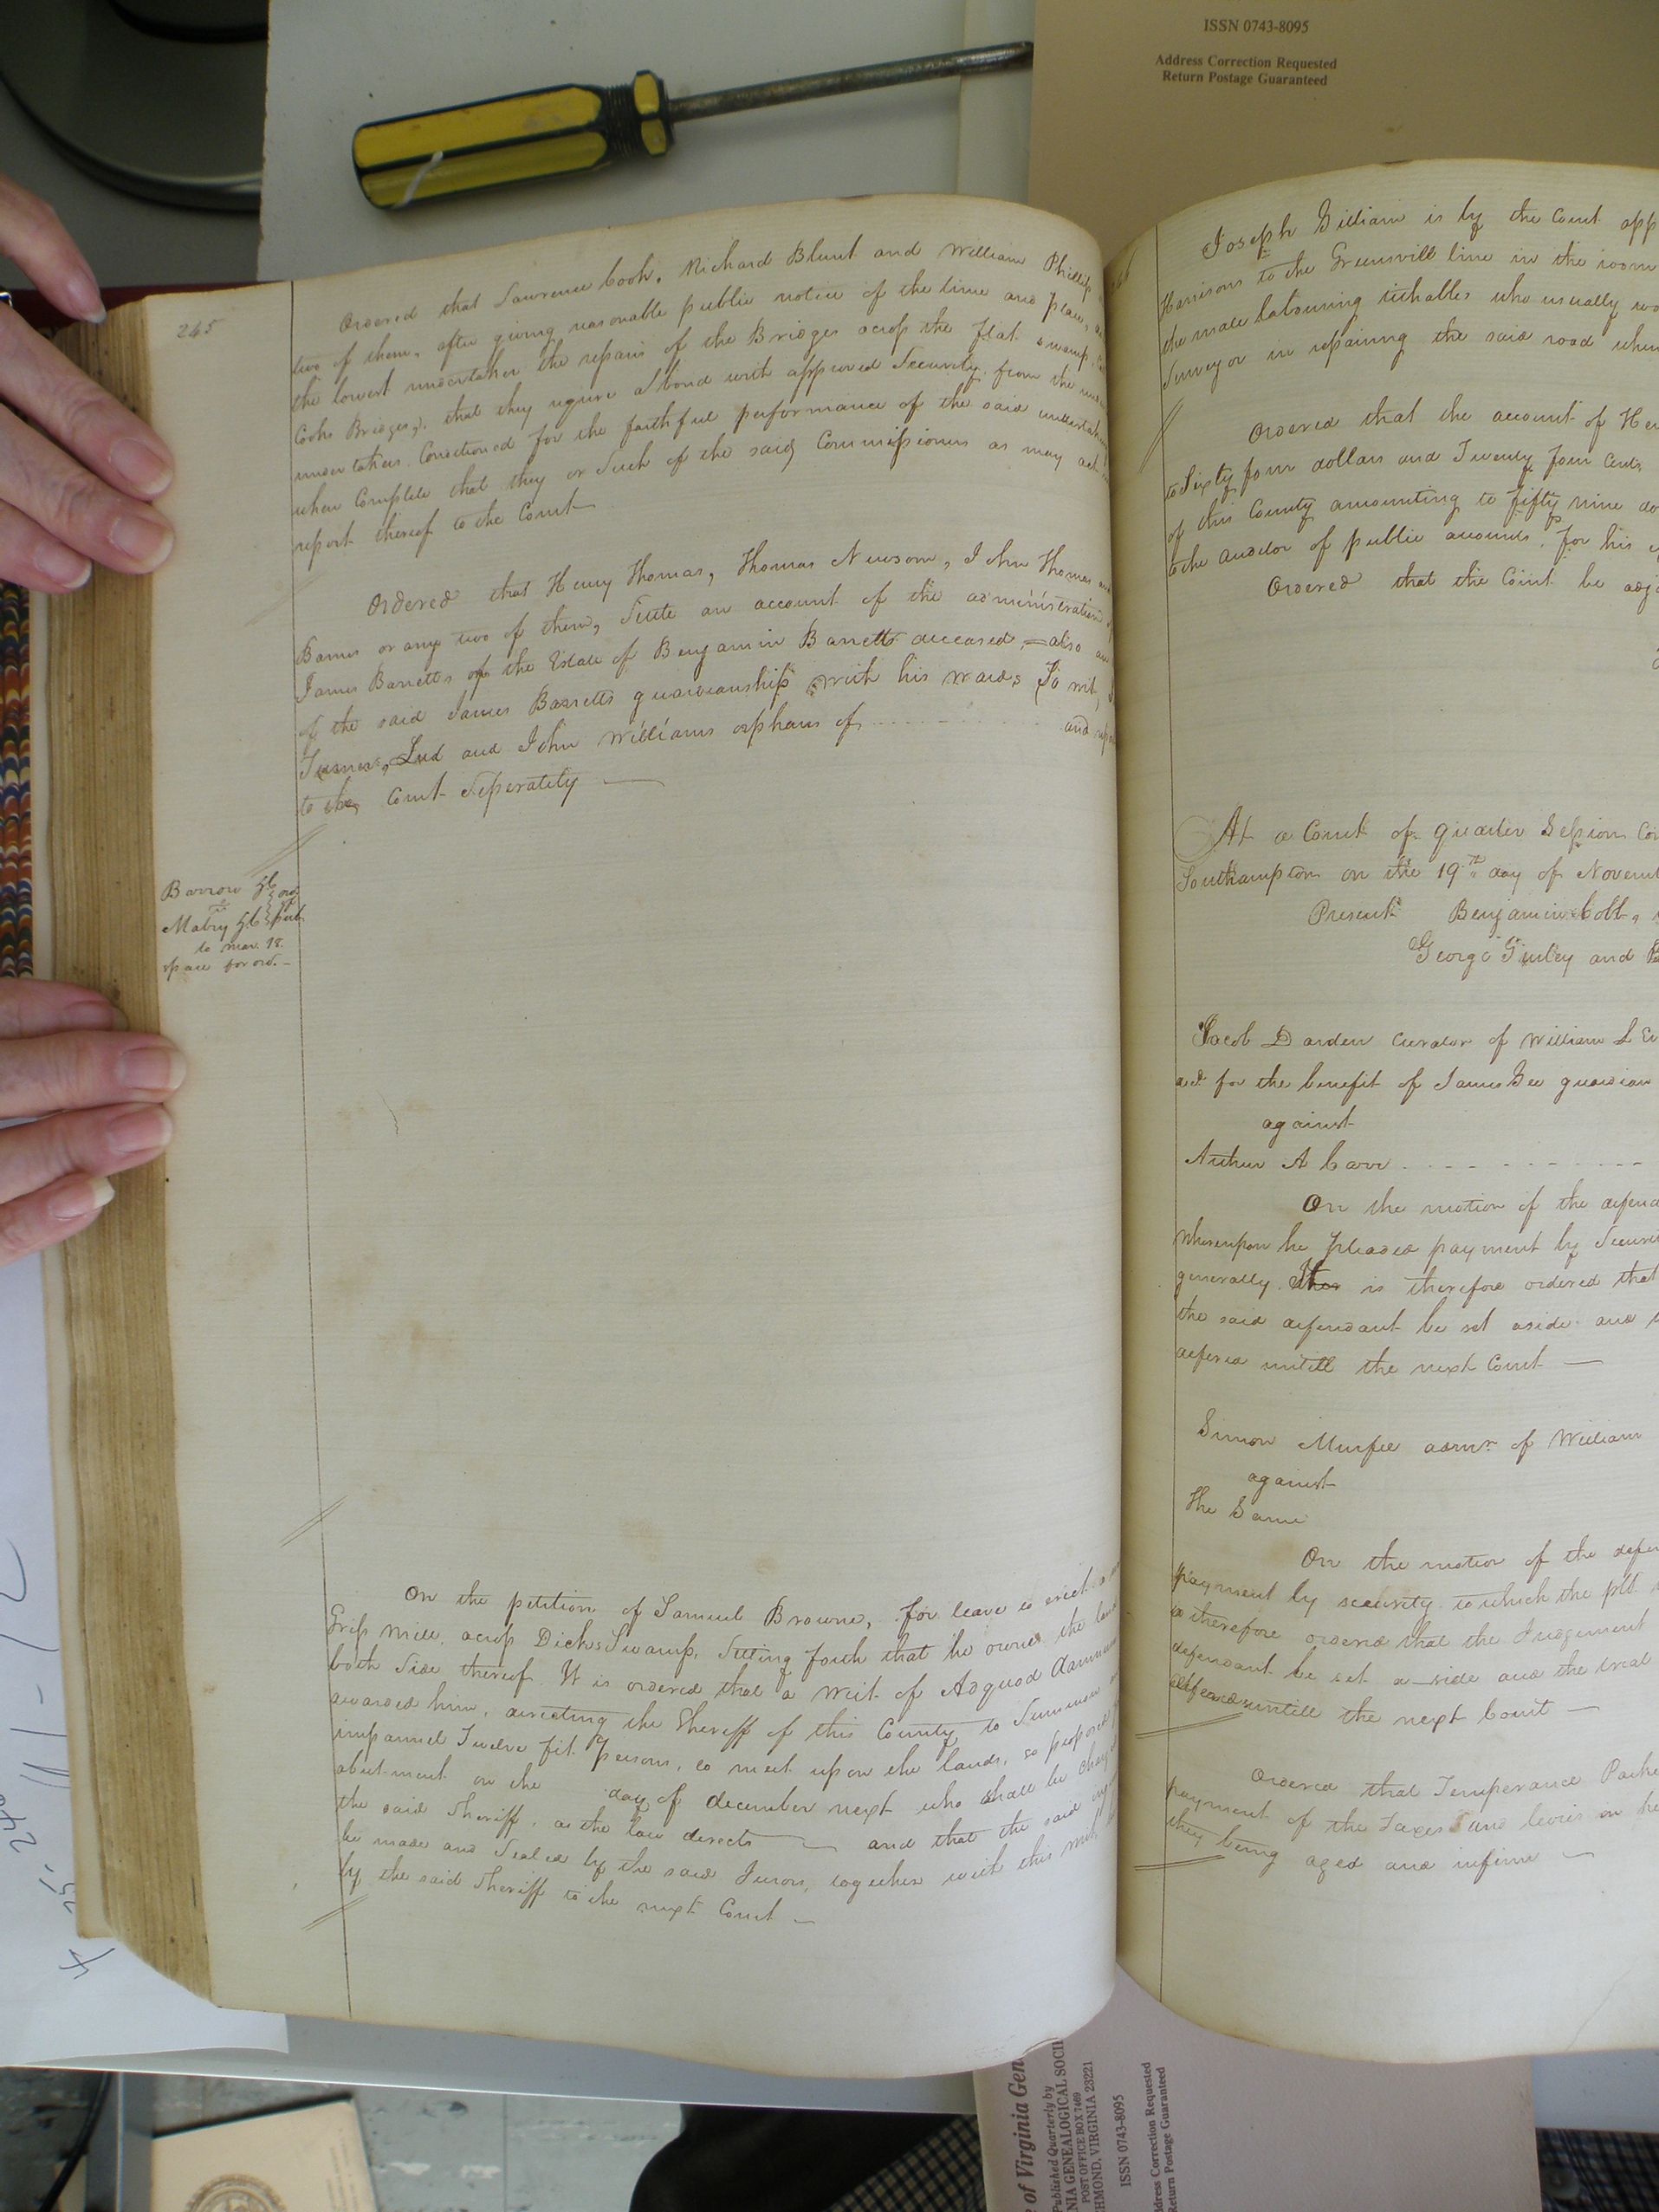 ISSN 0743-8095
Address Correction Requested
Return Postage Guaranteed
245
Ordered that Lawrence Cook, Richard Blunt and William Phillips
two of them, after giving reasonable public notice of the time and place,
the lowest undertaker the repairs of the Bridges across the Flat swamp,
Cooks Bridges, that they require a bond with approved Security from the
undertaker Conditioned for the faithful performance of the said
when Complete that they or such of the said Commissioners as may act
report thereof to the Court
Ordered that Henry Thomas, Thomas Newsom, John Thomas and
Barnes or any two of them, Settle an account of the administration
James Barretts of the Estate of Benjamin Barretts deceased, also an
of the said James Barretts guardianship with his wards, To wit,
Turner, and John Williams orphans of and
to the Court Seperately
Barrow
Mabry
to mar. 18.
space for ord.
On the petition of Samuel Browne, for leave to erect a
Grist mill, across Dicks Swamp, Setting forth that he owns the land
both Side thereof. It is ordered that a writ of Adquod damnum
awarded him, directing the Sheriff of this County to Summon
impannel Twelve fit Persons, to meet upon the lands, so proposed
abutment on the day of december next who shall be charged
the said Sheriff, as the law directs and that the said
be made and Sealed by the said Jurors, together with this writ,
by the said Sheriff to the next Court
Joseph Gilliam is by the Court app
Harrisons to the Greensvill line in the room
the male labouring tithables who usually wo
Surveyor in repairing the said road when
Ordered that the account of He
to Sixty four dollars and Twenty four Cents
of this County amounting to fifty nine do
to the auditor of public accounts, for his
Ordered that the Court be adj
At a Court of quarter Session Con
Southampton on the 19th day of Novem
Present Benjamin Cobb,
George Gurley and
Jacob Darden Curator of William L
for the benefit of James Gee guardian
against
Arthur A Carr
On the motion of the defend
whereupon he pleaded payment by Securit
generally. It is therefore ordered that
the said defendant be set aside and
defered untill the next Court
Simon Murfee admr of William
against
The Same
On the motion of the defen
payment by security to which the plt
is therefore ordered that the Judgement
defendant be set a-side and the trial
defered untill the next Court
Ordered that Temperance Parke
payment of the Taxes and levies on he
they being aged and infirm
of Virginia Gen
Published Quarterly by
NIA GENEALOGICAL SOCI
POST OFFICE BOX 7469
HMOND, VIRGINIA 23221
ISSN 0743-8095
ddress Correction Requested
Return Postage Guaranteed